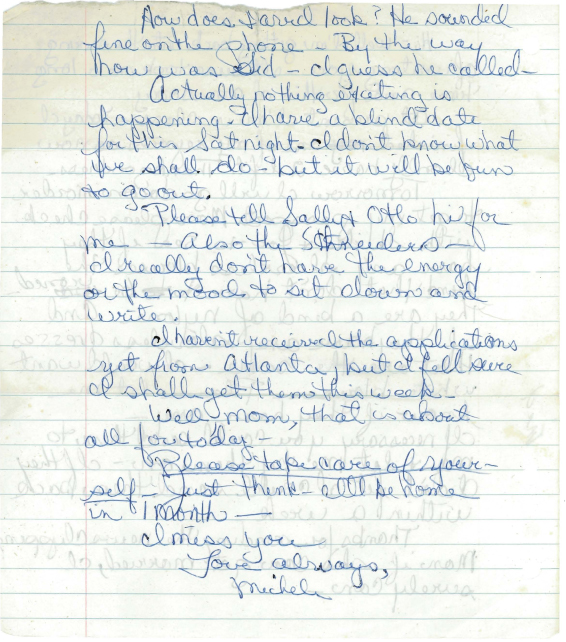 How does Jarrd look? He sounded
fine on the phone - By the way
how was Sid - I guess he called -
Actually nothing exciting is
happening. I have a blind date
for this Sat night - I don't know what
we shall do - but it will be fun
to go out.
Please tell Sally & Otto hi for
me - Also the Schneiders -
I really don't have the energy
or the mood to sit down and
write.
I haven't received the applications
yet from Atlanta, but I fell sure
I shall get them this week -
Well Mom, that is about
all for today -
Please take care of your-
self - Just think - I'll be home
in 1 month -
I miss you
Love always,
Michele